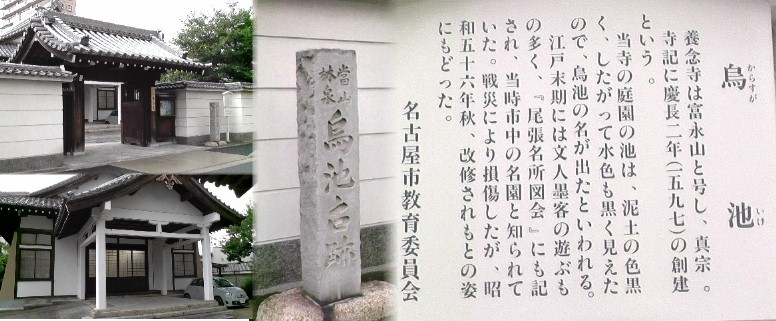 當山
林泉
烏池古跡
烏池
からすがいけ
養念寺は富永山と号し、真宗。
寺記に慶長二年(一五九七)の創建
という。
当寺の庭園の池は、泥土の色黒
く、したがって水色も黒く見えた
ので、烏池の名が出たといわれる。
江戸末期には文人墨客の遊ぶも
の多く、『尾張名所図会』にも記
され、当時市中の名園と知られて
いた。戦災により損傷したが、昭
和五十六年秋、改修されもとの姿
にもどった。
名古屋市教育委員会